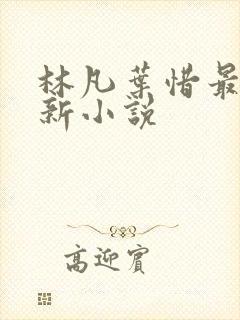 林凡葉惜最
新小說
高迎賓